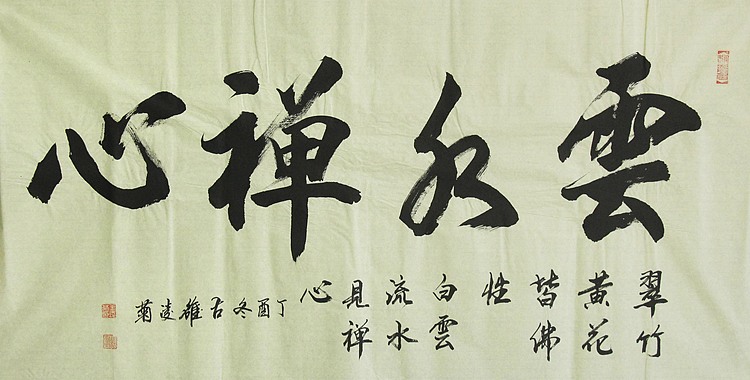 雲水禅心
翠竹
黄花
皆佛
性
白雲
流水
見禅
心
丁酉冬古雒凌菊